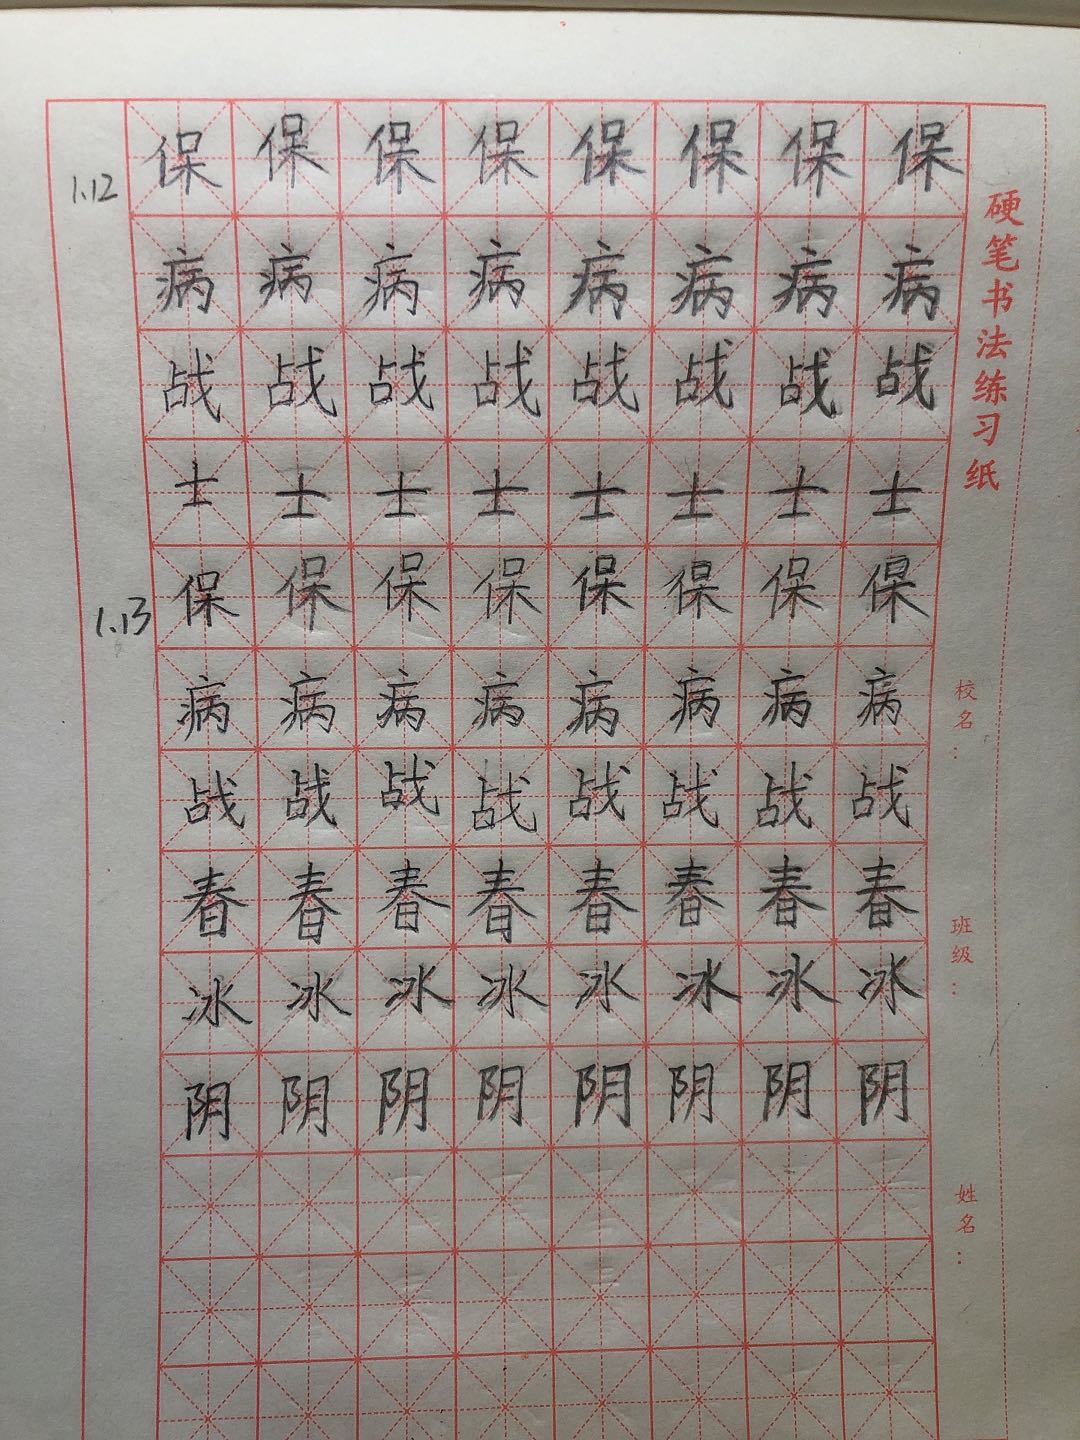 保保保保保保保保
1.12
病病病病病病病病
战战战战战战战战
士士士士士士士士
保保保保保保保保
1.13
病病病病病病病病
战战战战战战战战
春春春春春春春春
冰冰冰冰冰冰冰冰
阴阴阴阴阴阴阴阴
硬笔书法练习纸
校名：
班级：
姓名：